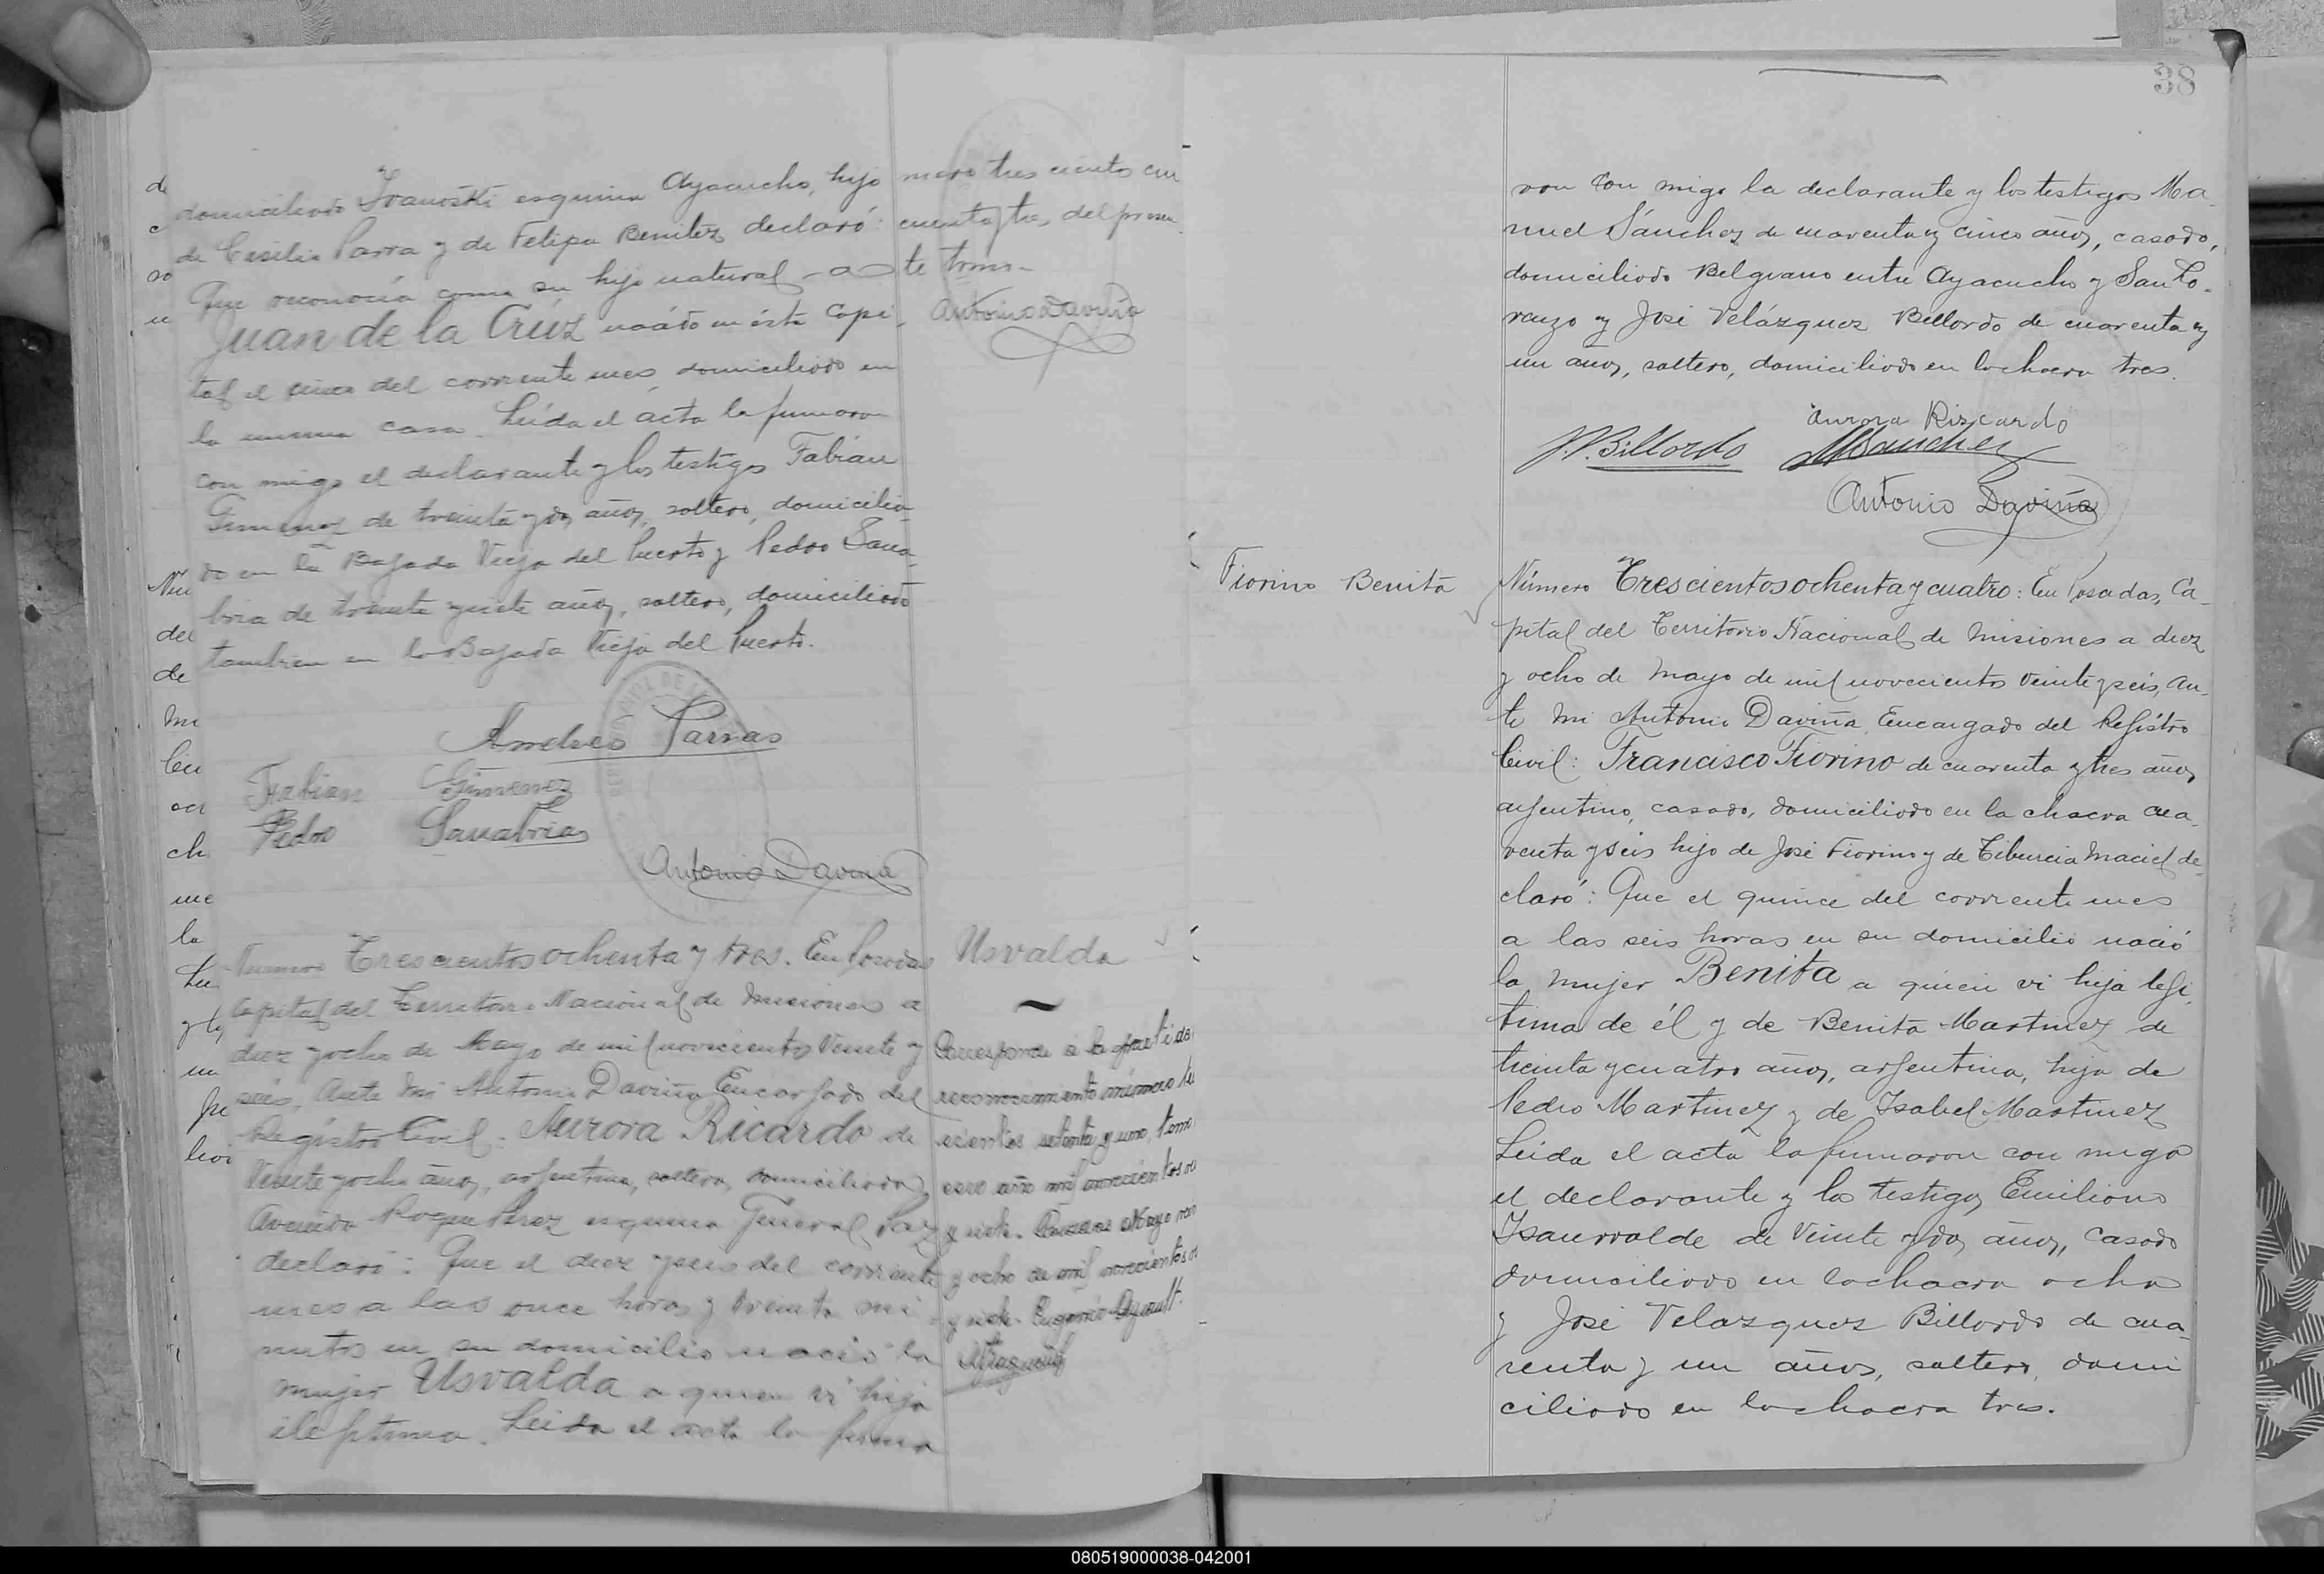 domiciliado Ivanoski esquina Ayacucho, hijo
de Cisilio Parra y de Felipa Benitez declaró:
Que reconocía como su hijo natural - a
Juan de la Crúz nacido en ésta Capi
tal el cinco del corriente mes, domiciliado en
la misma casa. Leída el acta la firmaron
con migo el declarante y los testigos Fabián
Gimenez de treinta y dos años, soltero, domicilia-
do en la Bajada Vieja del Puerto y Pedro Sana-
bria de treinta y siete años, soltero, domiciliado
tambien en la Bajada Vieja del Puerto.
mero tres cientos cin
cuenta y tres, del presen
te tomo-
Antonio Daviña
Andres Parras
Fabian Gimenez
Pedro Sanabria
Antonio Daviña
Número Trescientos ochenta y tres. En Posadas
Capital del Territorio Nacional de Misiones a
diez y ocho de Mayo de mil novecientos veinte y
seis, Ante mi Antonio Daviña Encargado del
Registro Civil: Aurora Ricardo de
veinte y ocho años, argentina, soltera, domiciliada
Avenida Roque Perez esquina General Paz
declaró: Que el diez y seis del corriente
mes a las once horas y treinta mi
nutos en su domicilio nació la
mujer Usvalda a quien vi hija
ilegítima. Leida el acta la firma
Usvalda
Corresponde a la partida
reconocimiento número tre
cientos setenta y uno, tomo
año mil novecientos
y siete. Mayo
y ocho de mil novecientos
y siete. Eugenio
38
ron con migo la declarante y los testigos Ma-
nuel Sánchez de cuarenta y cinco años, casado,
domiciliado Belgrano entre Ayacucho y San Lo-
renzo y José Velázquez Billordo de cuarenta y
un años, soltero, domiciliado en la chacra tres.
Aurora Riscardo
J.V. Billordo MSanchez
Antonio Daviña
Fiorino Benita
Número Trescientos ochenta y cuatro: En Posadas, Ca-
pital del Territorio Nacional de Misiones a diez
y ocho de Mayo de mil novecientos veinte y seis, An-
te mi Antonio Daviña, Encargado del Registro
Civil: Francisco Fiorino de cuarenta y tres años,
argentino, casado, domiciliado en la chacra cua-
renta y seis hijo de José Fiorino y de Tiburcia Maciel de-
claró: Que el quince del corriente mes
a las seis horas en su domicilio nació
la mujer Benita a quien vi hija legí-
tima de él y de Benita Martinez de
treinta y cuatro años, argentina, hija de
Pedro Martinez y de Isabel Martinez
Leida el acta la firmaron con migo
el declarante y los testigos Emiliano
Isaurralde de veinte y dos años, casado
domiciliado en la chacra ocho
y José Velazquez Billordo de cua-
renta y un años, soltero, domi
ciliado en la chacra tres.
080519000038-042001